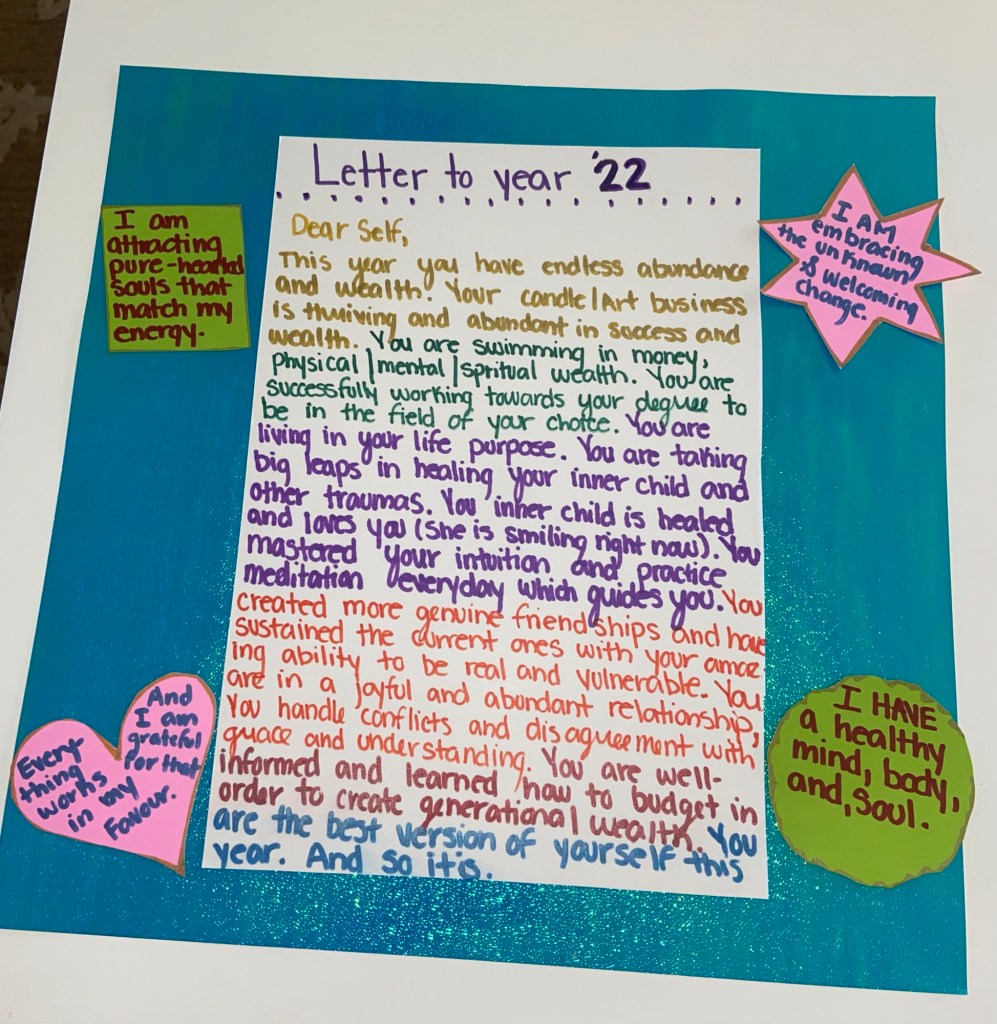 Letter to year '22
Dear Self,
This year you have endless abundance
and wealth. Your candle/Art business
is thriving and abundant in success and
wealth. You are swimming in money,
physical/mental/spritual wealth. You are
successfully working towards your degree to
be in the field of your choice. You are
living in your life purpose. You are taking
big leaps in healing your inner child and
other traumas. You inner child is healed
and loves you (she is smiling right now). You
mastered your intuition and practice
meditation everyday which guides you. You
created more genuine friendships and have
sustained the current ones with your amaz
ing ability to be real and vulnerable. You
are in a joyful and abundant relationship,
You handle conflicts and disagreement with
grace and understanding. You are well-
informed and learned how to budget in
order to create generational wealth. You
are the best version of yourself this
year. And so it is.
I am
attracting
pure-hearted
souls that
match my
energy.
I AM
embracing
the unknown
& welcoming
change.
Every
thing
works
in my
favour.
And
I am
grateful
for that
I HAVE
a healthy
mind, body,
and, soul.